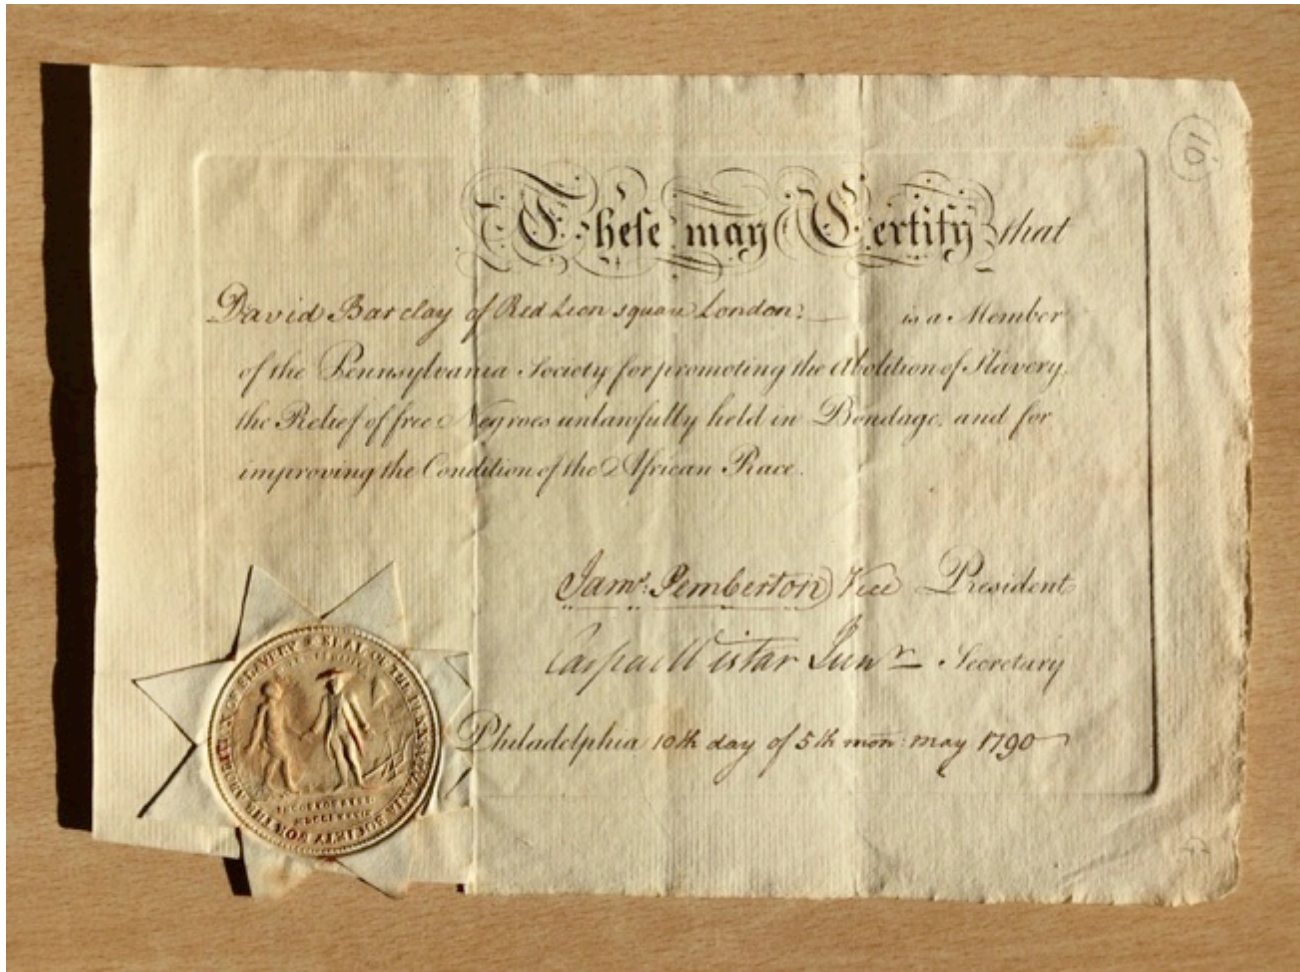 10
These may Certify that
David Barclay of Red Lion square London: is a Member
of the Pennsylvania Society for promoting the Abolition of Slavery,
the Relief of free Negroes unlawfully held in Bondage, and for
improving the Condition of the African Race.
Jams. Pemberton Vice President
Caspar Wistar Junr Secretary
Philadelphia 10th day of 5th mon: may 1790
SEAL OF THE PENNSYLVANIA SOCIETY FOR THE ABOLITION OF SLAVERY
INCORPORATED